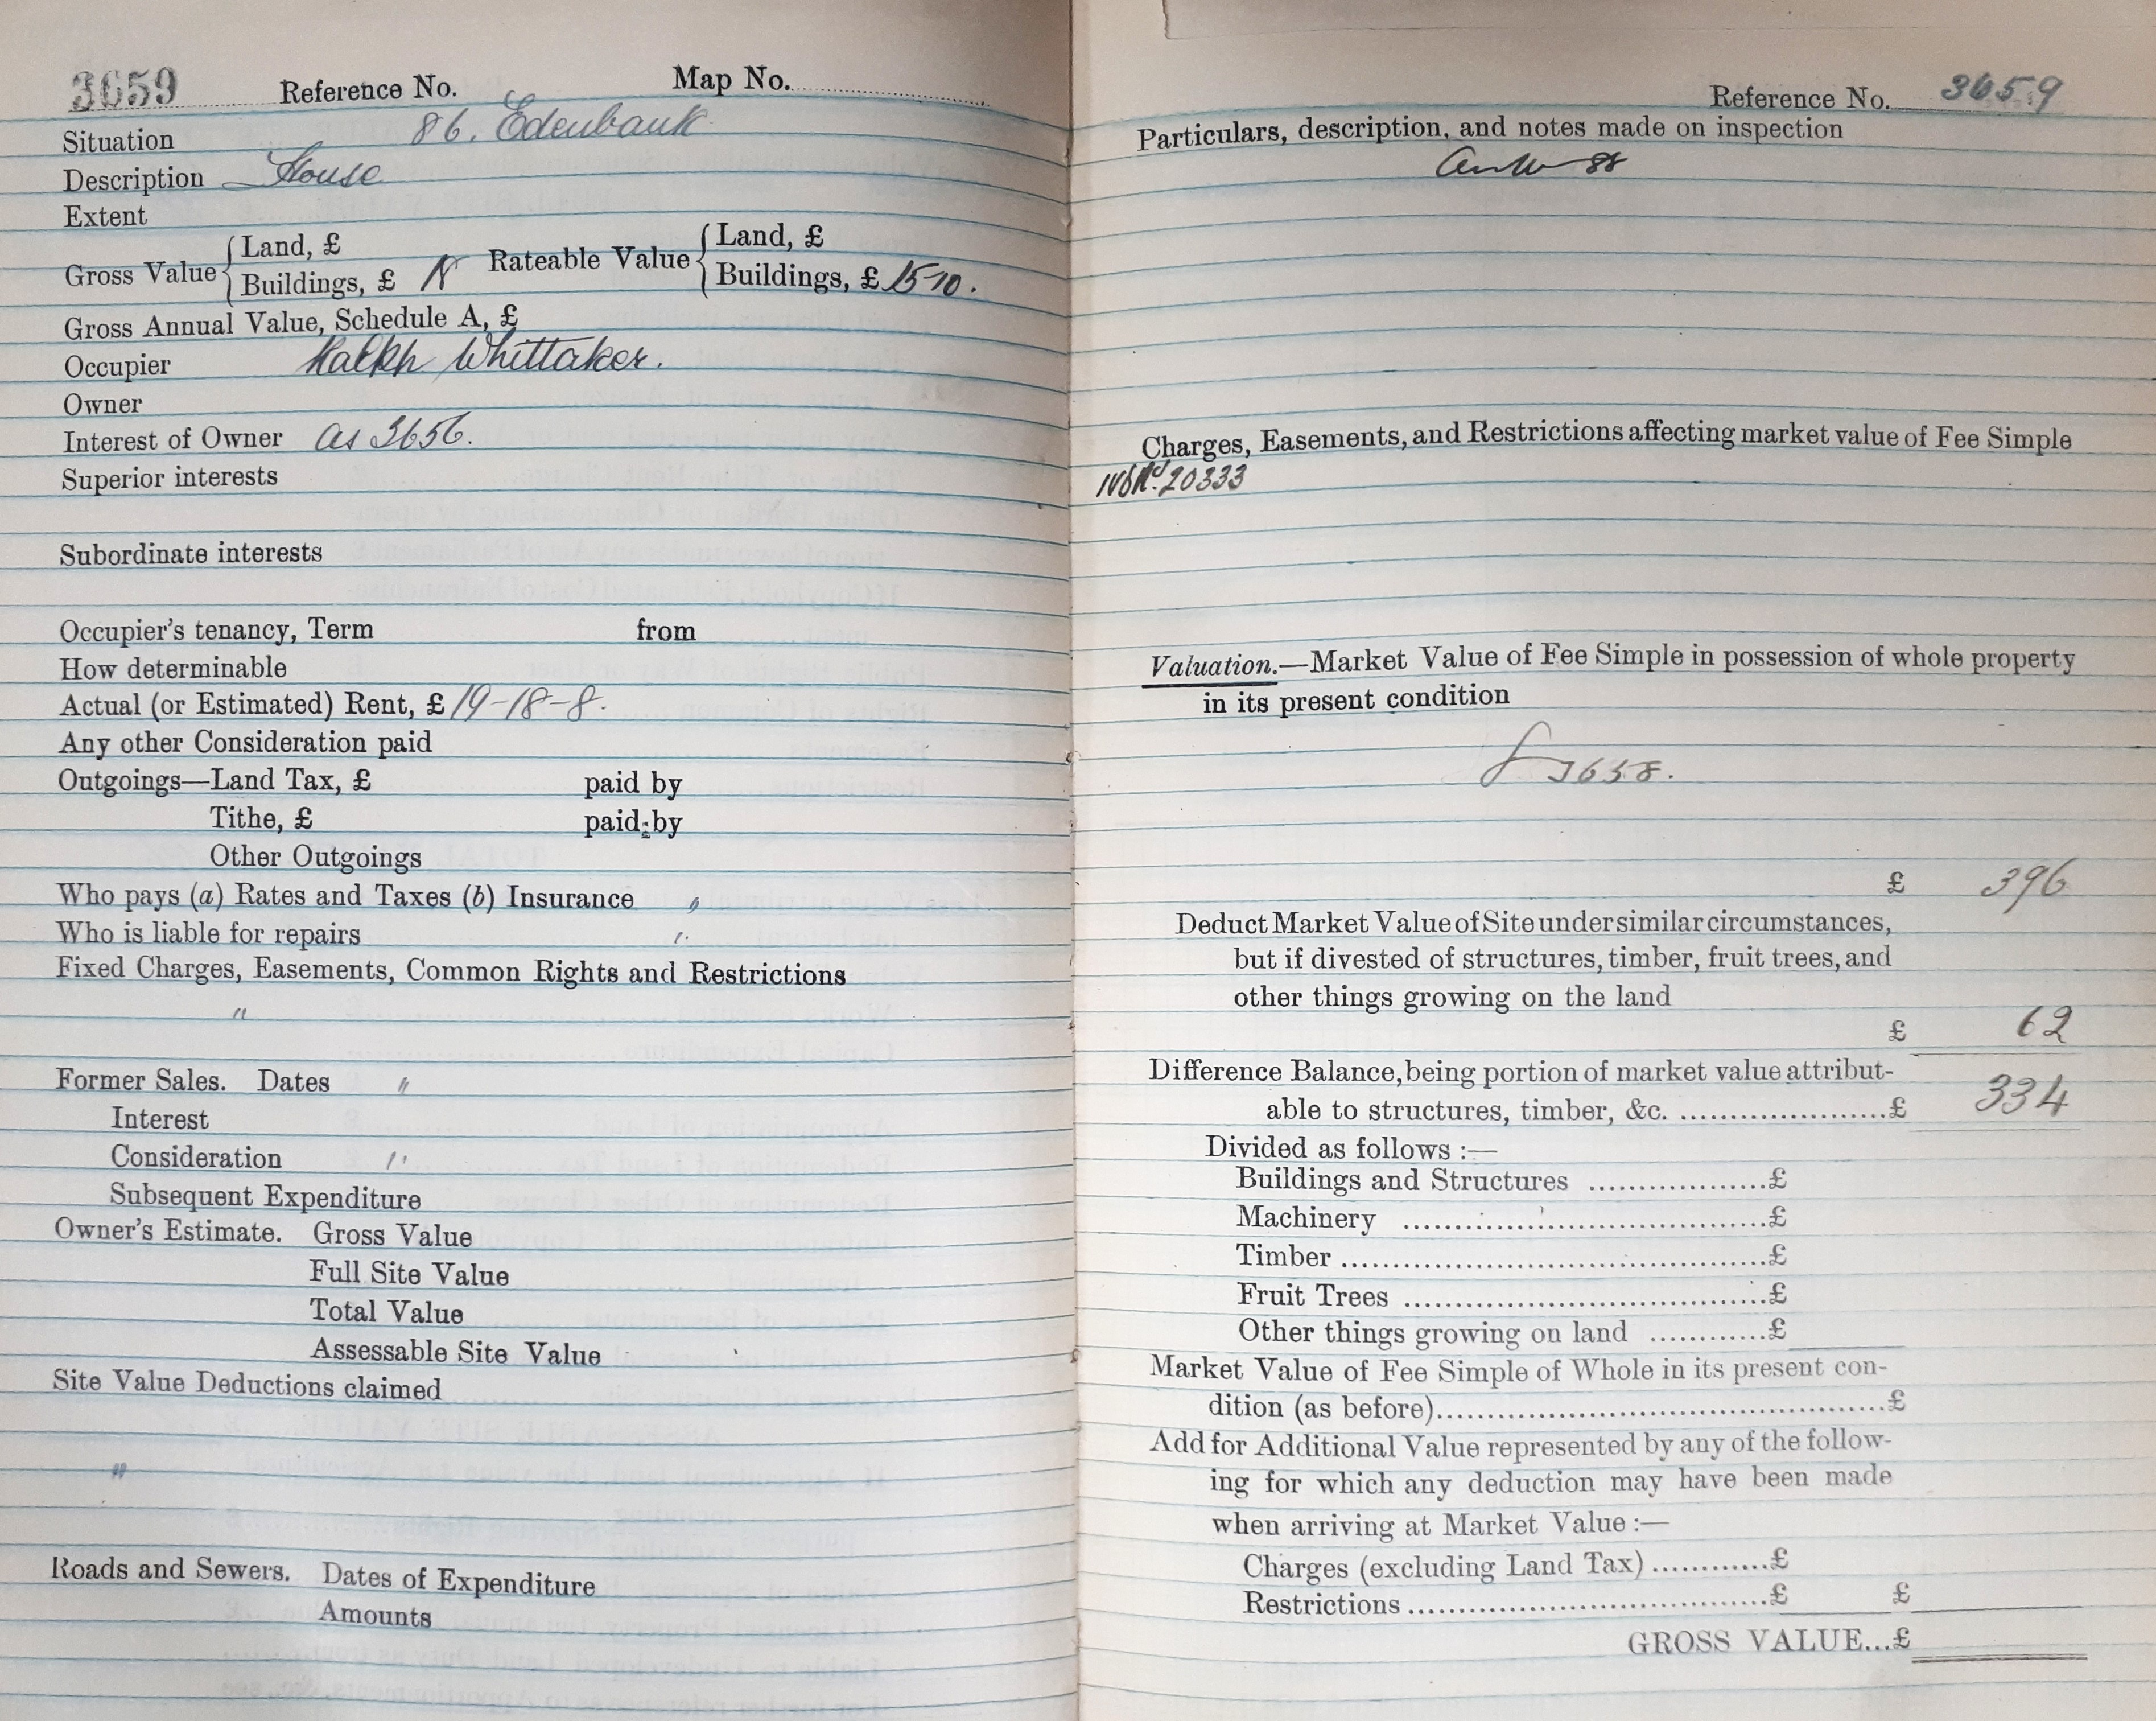 3659 Reference No. Map No.
Situation 86. Edenbank
Description House
Extent
Gross Value { Land, £
Buildings, £ Rateable Value { Land, £
Buildings, £ 15-10.
Gross Annual Value, Schedule A, £
Occupier Ralph Whittaker.
Owner
Interest of Owner as 3656.
Superior interests
Subordinate interests
Occupier's tenancy, Term from
How determinable
Actual (or Estimated) Rent, £ 19-18-8.
Any other Consideration paid
Outgoings—Land Tax, £ paid by
Tithe, £ paid by
Other Outgoings
Who pays (a) Rates and Taxes (b) Insurance "
Who is liable for repairs "
Fixed Charges, Easements, Common Rights and Restrictions
"
Former Sales. Dates "
Interest
Consideration "
Subsequent Expenditure
Owner's Estimate. Gross Value
Full Site Value
Total Value
Assessable Site Value
Site Value Deductions claimed
"
Roads and Sewers. Dates of Expenditure
Amounts
Reference No. 3659
Particulars, description, and notes made on inspection
88
Charges, Easements, and Restrictions affecting market value of Fee Simple
20333
Valuation.—Market Value of Fee Simple in possession of whole property
in its present condition
3658.
£ 396
Deduct Market Value of Site under similar circumstances,
but if divested of structures, timber, fruit trees, and
other things growing on the land
£ 62
Difference Balance, being portion of market value attribut-
able to structures, timber, &c. ........................£ 334
Divided as follows :—
Buildings and Structures ....................£
Machinery ........................................£
Timber ................................................£
Fruit Trees ........................................£
Other things growing on land ............£
Market Value of Fee Simple of Whole in its present con-
dition (as before)..................................................£
Add for Additional Value represented by any of the follow-
ing for which any deduction may have been made
when arriving at Market Value :—
Charges (excluding Land Tax) ............£
Restrictions ........................................£ £
GROSS VALUE...£